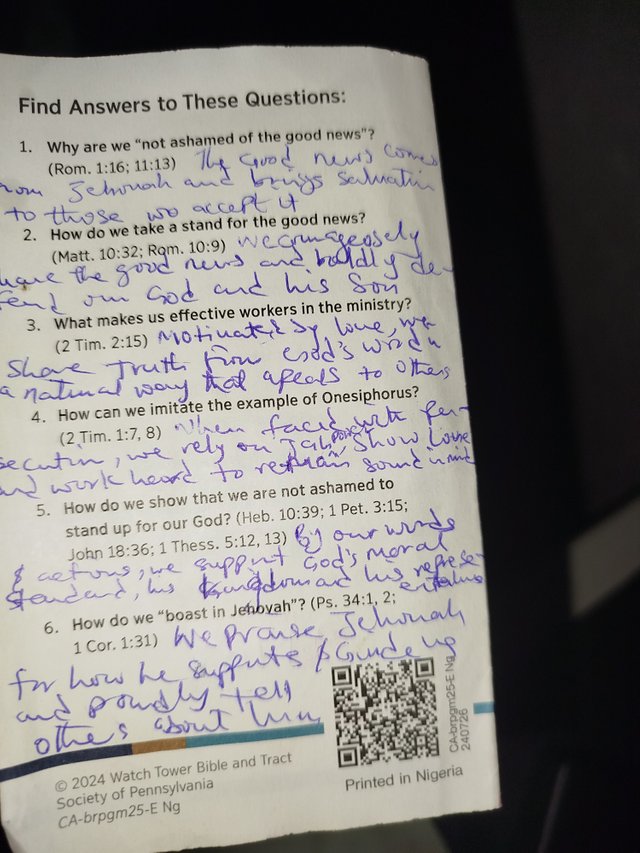 Find Answers to These Questions:
1. Why are we "not ashamed of the good news"?
(Rom. 1:16; 11:13) The Good news comes
rom Jehovah and brings Salvation
to those wo accept it
2. How do we take a stand for the good news?
(Matt. 10:32; Rom. 10:9) We courageosely
the good news and boldly de-
fend our God and his Son
3. What makes us effective workers in the ministry?
(2 Tim. 2:15) Motivated by love, we
Share Truth from God's word n
a natural way that apeals to others
4. How can we imitate the example of Onesiphorus?
(2 Tim. 1:7, 8) When faced with per-
secution, we rely on power, Show Love
and work heard to remain sound in mind
5. How do we show that we are not ashamed to
stand up for our God? (Heb. 10:39; 1 Pet. 3:15;
John 18:36; 1 Thess. 5:12, 13) By our words
& actions, we support God's moral
Standard, his Kingdom and his represe-
entatives
6. How do we "boast in Jehovah"? (Ps. 34:1, 2;
1 Cor. 1:31) We praise Jehovah
for how he supports & Guide us
and proudly tell
others about him
© 2024 Watch Tower Bible and Tract
Society of Pennsylvania
CA-brpgm25-E Ng
Printed in Nigeria
CA-brpgm25-E Ng
240726